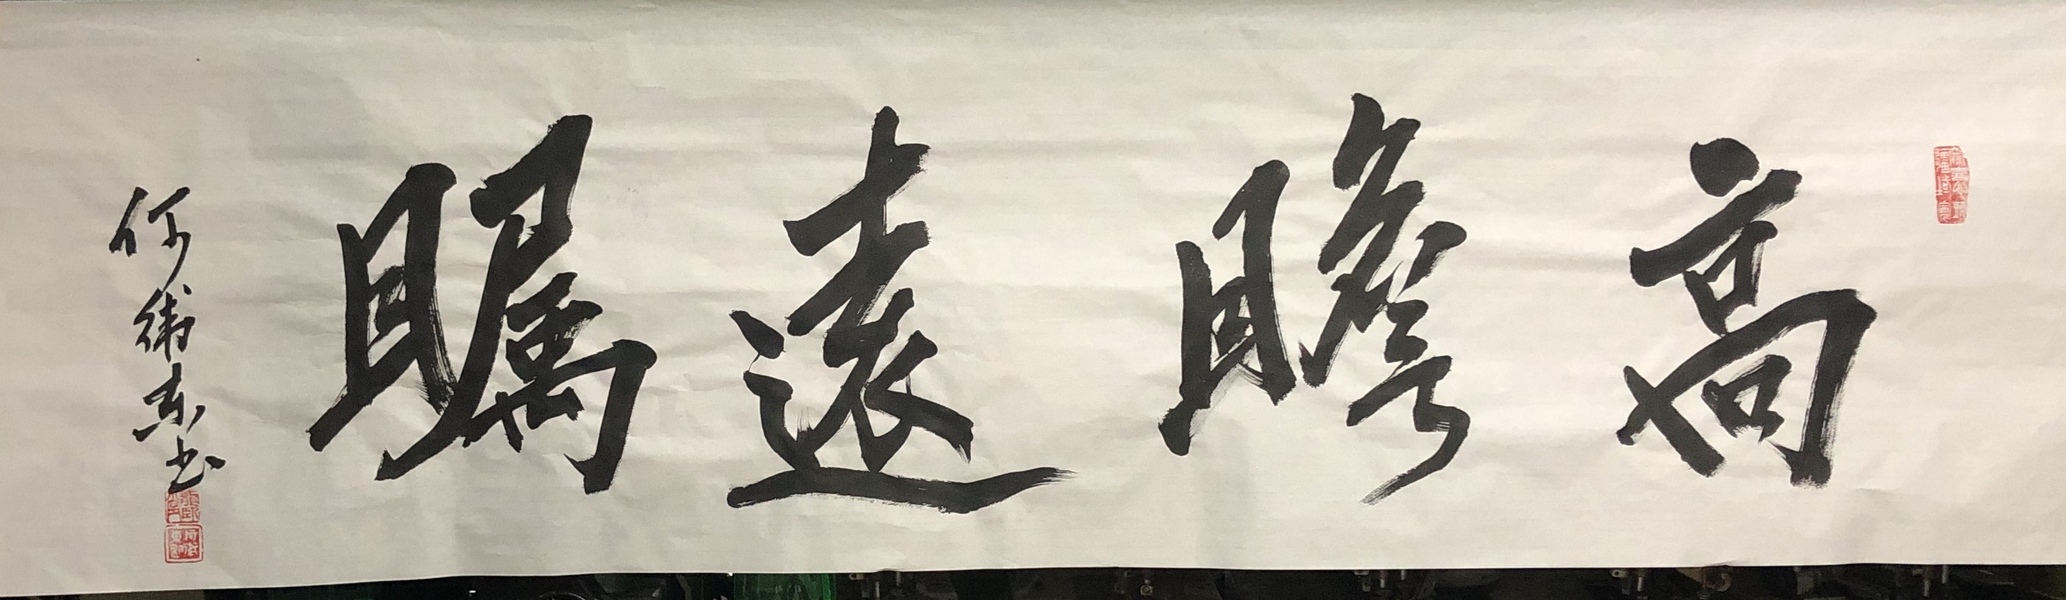 高瞻遠矚
何衛東书